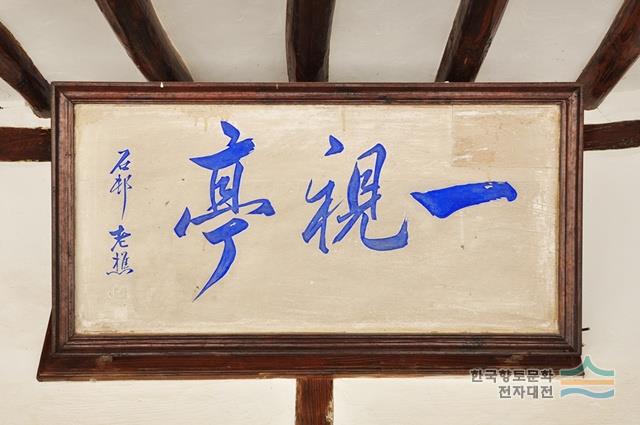 一視亭
石邨 老樵
한국향토문화
전자대전